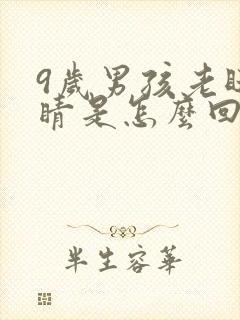 9歲男孩老眨
睛是怎麼回
半生容華